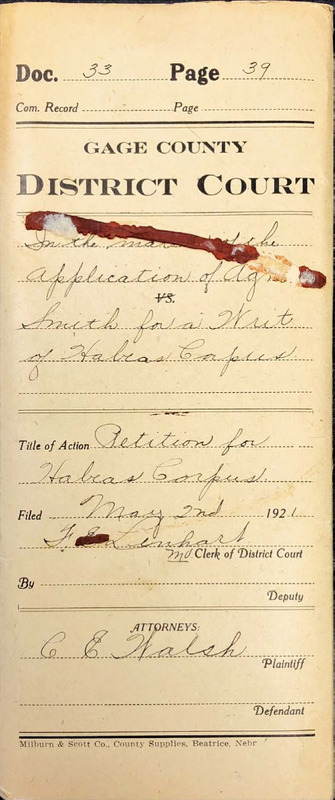 Doc. 33 Page 39
Com. Record Page
GAGE COUNTY
DISTRICT COURT
In the the
Application of
VS.
Smith for a Writ
of Habeas Corpus
Title of Action Petition for
Habeas Corpus
Filed May 2nd 1921
F E Lenhart
Clerk of District Court
By
Deputy
ATTORNEYS:
C E Walsh
Plaintiff
Defendant
Milburn & Scott Co., County Supplies, Beatrice, Nebr